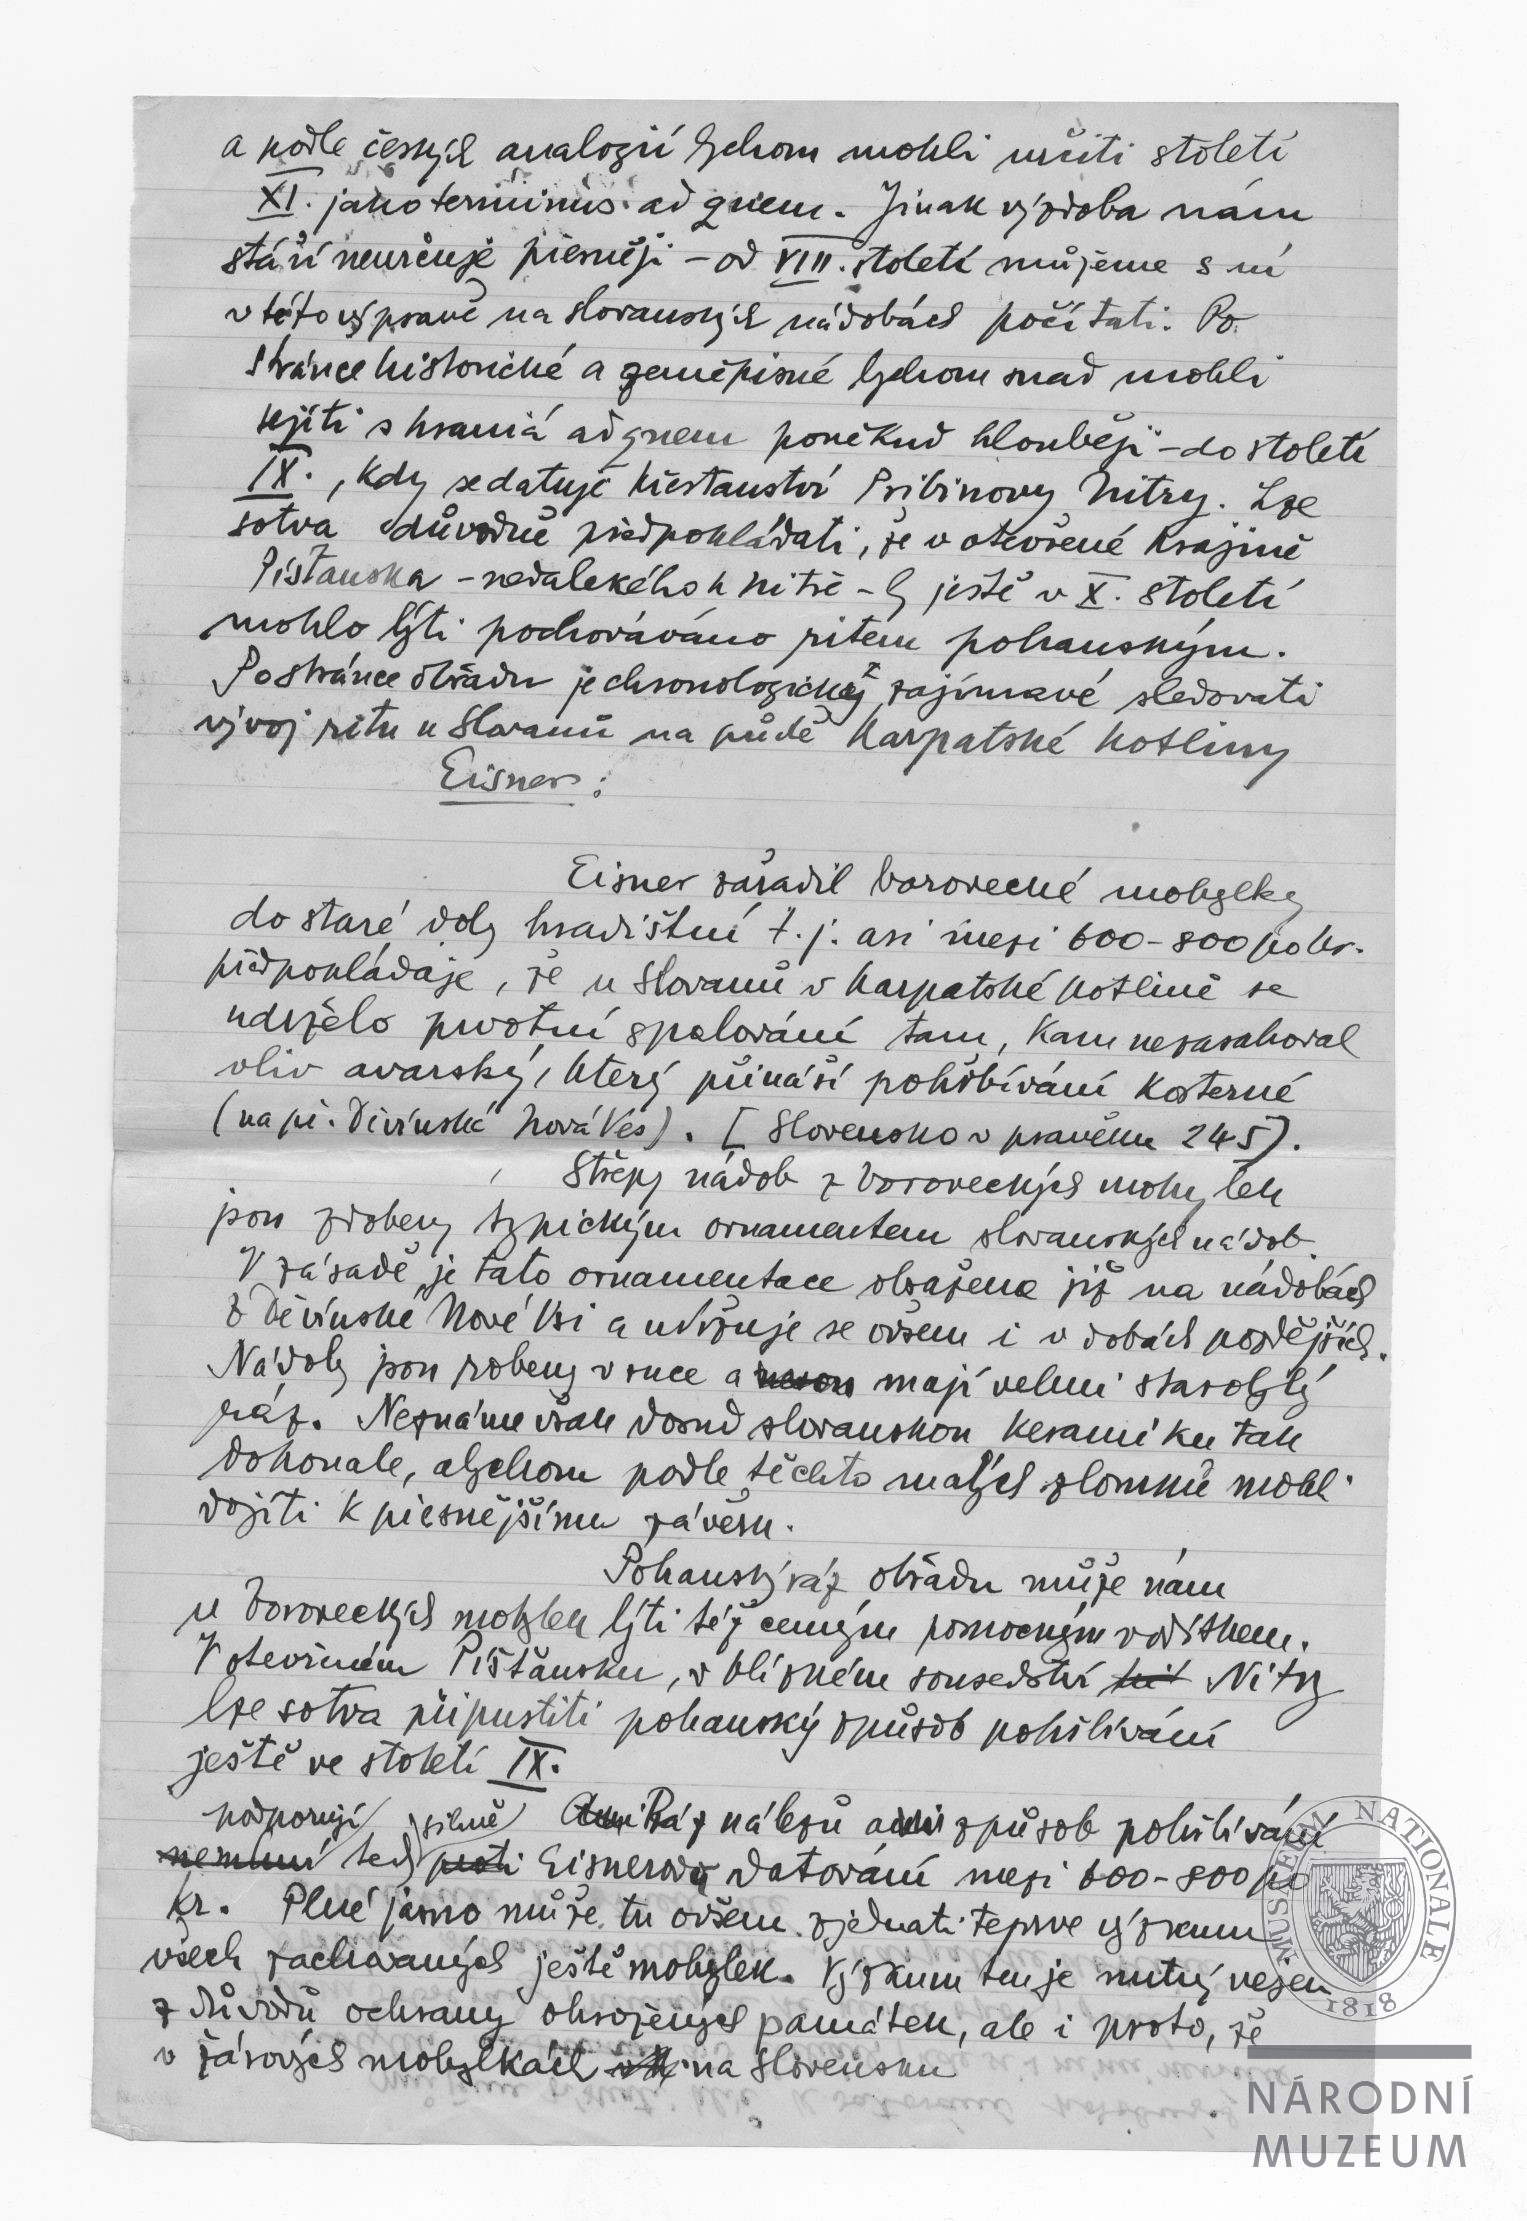 a podle českých analogií bychom mohli určiti století
XI. jako terminus ad quem. Jinak výzdoba nám
stáří neurčuje přesněji – od VIII. století můžeme s ní
v této výpravě na slovanských nádobách počítati. Po
stránce historické a zeměpisné bychom snad mohli
sejíti s hranicí ad quem poněkud hlouběji – do století
IX., kdy se datuje křesťanství Pribinovy Nitry. Lze
sotva důvodně předpokládati, že v otevřené krajině
Píšťanska – nedalekého k Nitře – by ještě v X. století
mohlo býti pochováváno ritem pohanským.
Po stránce obřadu je chronologicky zajímavé sledovati
vývoj ritu u Slovanů na půdě Karpatské kotliny
Eisner:
Eisner zařadil borovecké mohylky
do staré doby hradištní t.j. asi mezi 600–800 po Kr.
předpokládaje, že u Slovanů v Karpatské kotlině se
udrželo prvotní spalování tam, kam nezasahoval
vliv avarský, který přináší pohřbívání kosterné
(na př. Děvínská Nová Ves). [Slovensko v pravěku 245].
Střepy nádob z boroveckých mohylek
jsou zdobeny typickým ornamentem slovanských nádob.
V zásadě je tato ornamentace obsažena již na nádobách
z Děvínské Nové Vsi a udržuje se ovšem i v dobách pozdějších.
Nádoby jsou robeny v ruce a mají velmi starobylý
ráz. Neznáme však dosud slovanskou keramiku tak
dokonale, abychom podle těchto malých zlomků mohli
dojíti k přesnějšímu závěru.
Pohanský ráz obřadu může nám
u boroveckých mohylek býti též cenným pomocným vodítkem.
V otevřeném Píšťansku, v blízkém sousedství Nitry
lze sotva připustiti pohanský způsob pohřbívání
ještě ve století IX.
podporují silně Ráz nálezů a způsob pohřbívání
nemluví tedy proti Eisnerovu datování mezi 600–800 po
Kr. Plné jasno může tu ovšem zjednati teprve výzkum
všech zachovaných ještě mohylek. Výzkum ten je nutný nejen
z důvodů ochrany ohrožených památek, ale i proto, že
v žárových mohylkách na Slovensku
MUSEUM NATIONALE
1818
NÁRODNÍ
MUZEUM